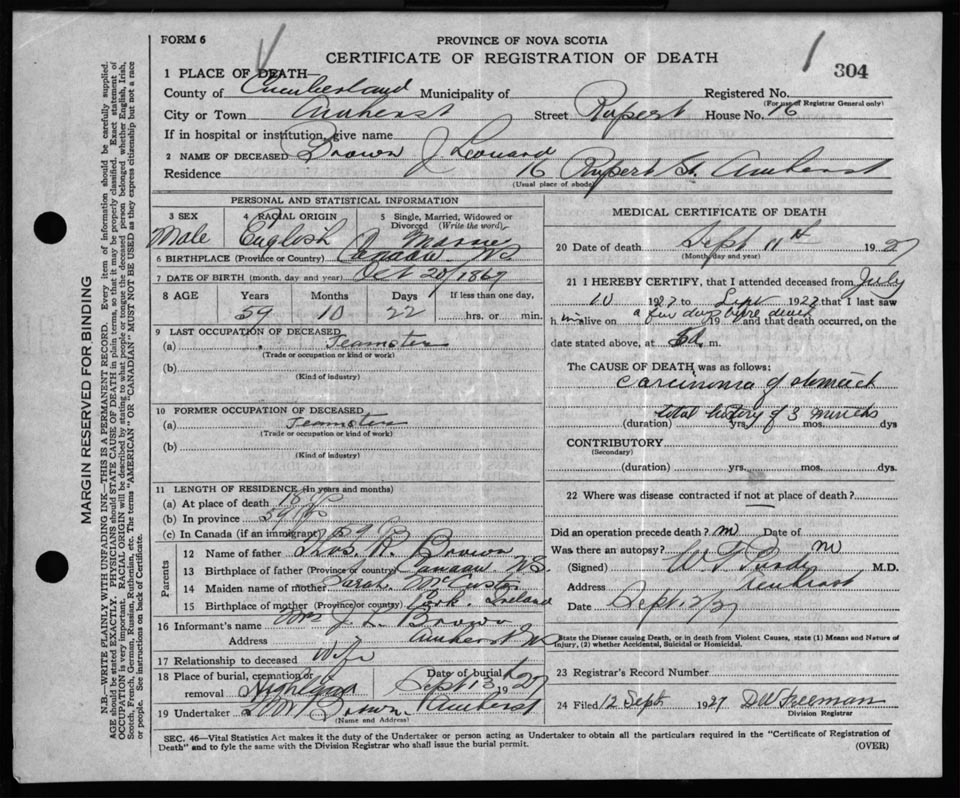 FORM 6
PROVINCE OF NOVA SCOTIA
CERTIFICATE OF REGISTRATION OF DEATH
304
1 PLACE OF DEATH—
County of Cumberland Municipality of Registered No.
(For use of Registrar General only)
City or Town Amherst Street Rupert House No. 16
If in hospital or institution, give name
2 NAME OF DECEASED Brown J. Leonard
Residence 16 Rupert St. Amherst
(Usual place of abode)
PERSONAL AND STATISTICAL INFORMATION
3 SEX
Male
4 RACIAL ORIGIN
English
5 Single, Married, Widowed or Divorced (Write the word)
6 BIRTHPLACE (Province or Country) NS
7 DATE OF BIRTH (month, day and year) Oct 20/1867
8 AGE Years Months Days If less than one day,
59 10 22 hrs. or min.
9 LAST OCCUPATION OF DECEASED
(a) Teamster
(Trade or occupation or kind or work)
(b)
(Kind of industry)
10 FORMER OCCUPATION OF DECEASED
(a) Teamster
(Trade or occupation or kind or work)
(b)
(Kind of industry)
11 LENGTH OF RESIDENCE (In years and months)
(a) At place of death 18
(b) In province 59 yrs
(c) In Canada (if an immigrant) 59
Parents
12 Name of father R. Brown
13 Birthplace of father (Province or country) NS.
14 Maiden name of mother Sarah
15 Birthplace of mother (Province or country) Cork. Ireland
16 Informant's name Mrs J. L. Brown
Address Amherst NS
17 Relationship to deceased Wife
18 Place of burial, cremation or removal Highland
Date of burial Sept 13 1927
19 Undertaker Brown Amherst
(Name and Address)
MEDICAL CERTIFICATE OF DEATH
20 Date of death Sept 11th 1927
(Month, day and year)
21 I HEREBY CERTIFY, that I attended deceased from July
10 1927 to Sept 1927 that I last saw
him alive on a few days before death 19 and that death occurred, on the
date stated above, at m.
The CAUSE OF DEATH was as follows:
Carcinoma of stomach
total history of 3 months
(duration) yrs. mos. dys
CONTRIBUTORY
(Secondary)
(duration) yrs. mos. dys.
22 Where was disease contracted if not at place of death?
Did an operation precede death? no Date of
Was there an autopsy? no
(Signed) M.D.
Address Amherst
Date Sept.
State the Disease causing Death, or in death from Violent Causes, state (1) Means and Nature of Injury, (2) whether Accidental, Suicidal or Homicidal.
23 Registrar's Record Number
24 Filed 12 Sept 1927 DW Freeman
Division Registrar
SEC. 46—Vital Statistics Act makes it the duty of the Undertaker or person acting as Undertaker to obtain all the particulars required in the "Certificate of Registration of
Death" and to fyle the same with the Division Registrar who shall issue the burial permit.
(OVER)
MARGIN RESERVED FOR BINDING
N.B.—WRITE PLAINLY WITH UNFADING INK—THIS IS A PERMANENT RECORD. Every item of information should be carefully supplied.
AGE should be stated EXACTLY. PHYSICIANS should STATE CAUSE OF DEATH in plain terms, so that it may be properly classified. Exact statement of
OCCUPATION is very important. RACIAL ORIGIN will be described by stating to what people or tongue the deceased person belonged whether English, Irish,
Scotch, French, German, Russian, Ruthenian, etc. The terms "AMERICAN" OR "CANADIAN" MUST NOT BE USED as they express citizenship but not a race
or people. See instructions on back of Certificate.